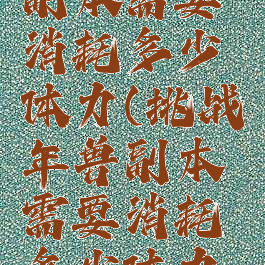 副本需要
消耗多少
体力(挑战
年兽副本
需要消耗
多少体力